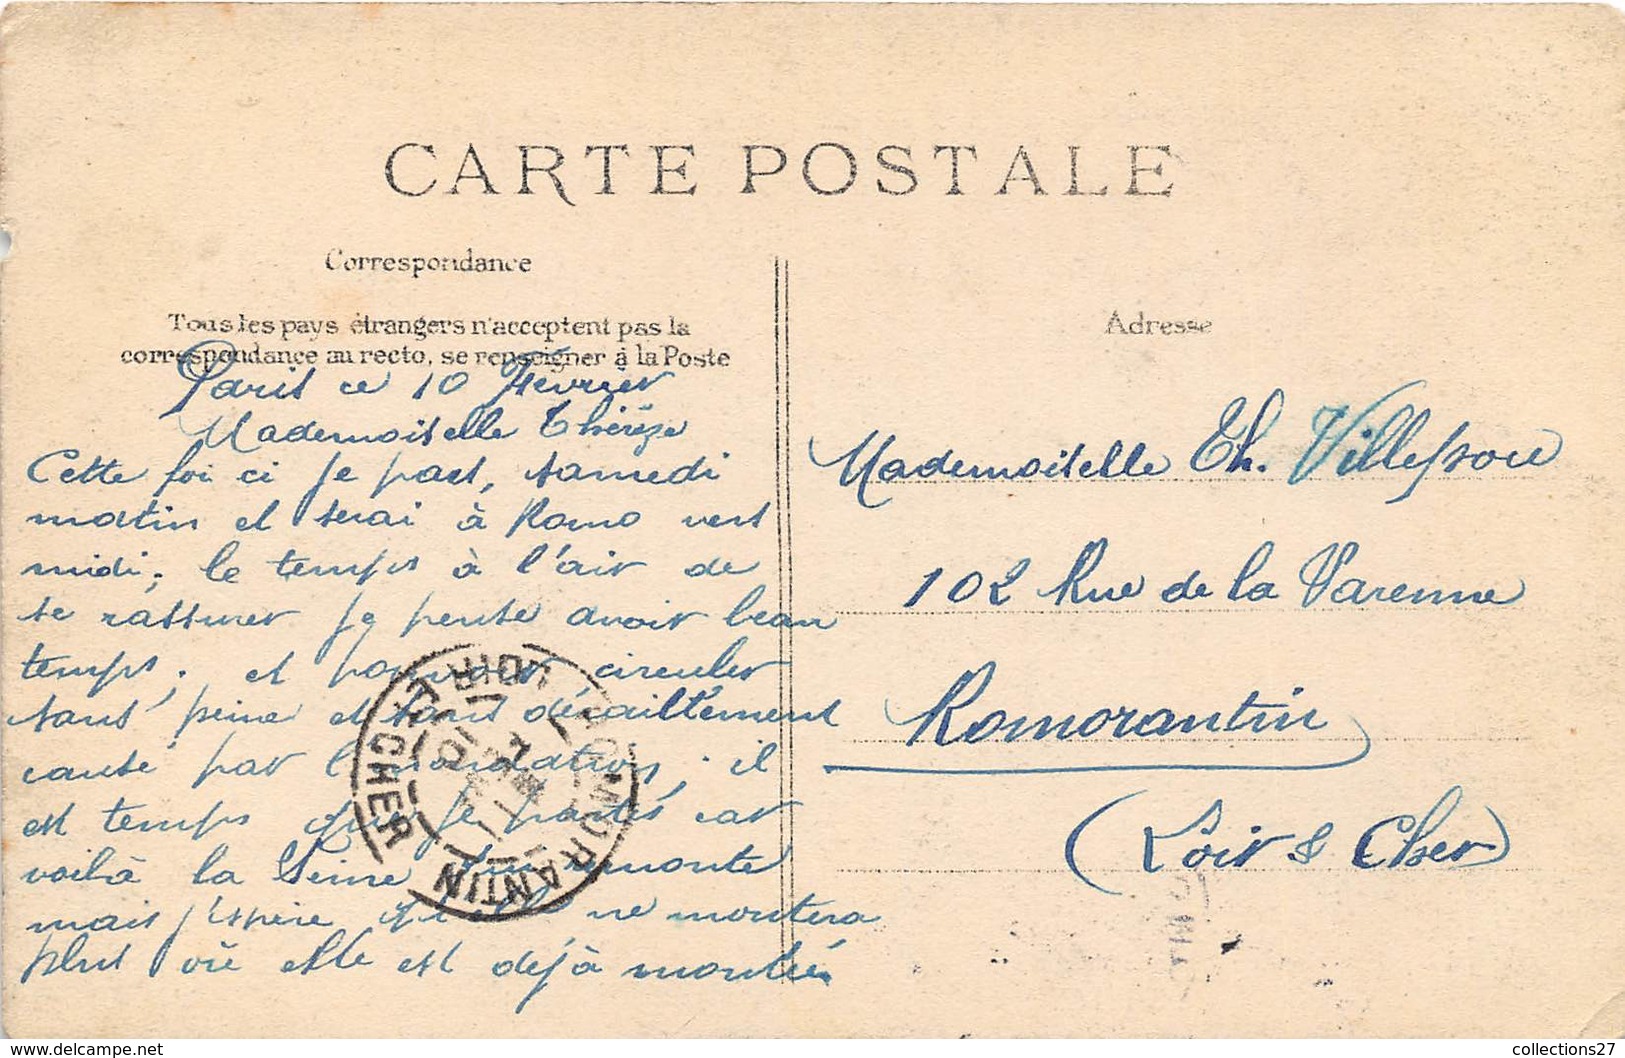 CARTE POSTALE
Correspondance
Tous les pays étrangers n'acceptent pas la
correspondance au recto, se renseigner à la Poste
Paris ce 10 Février
Mademoiselle Thérèze
Cette foi ci je part, samedi
matin et serai à Romo vers
midi; le temps à l'air de
se rassurer je pense avoir beau
temps; et pouvoir circuler
sans peine et sans déraillement
causé par l'inondation; il
est temps que je partes car
voilà la Seine qui remonte
mais j'espère qu'elle ne montera
plus où elle est déjà montée
Adresse
Mademoiselle Th.
102 Rue de la Varenne
Romorantin
(Loir & Cher)
ROMORANTIN
LOIR ET CHER
collections27